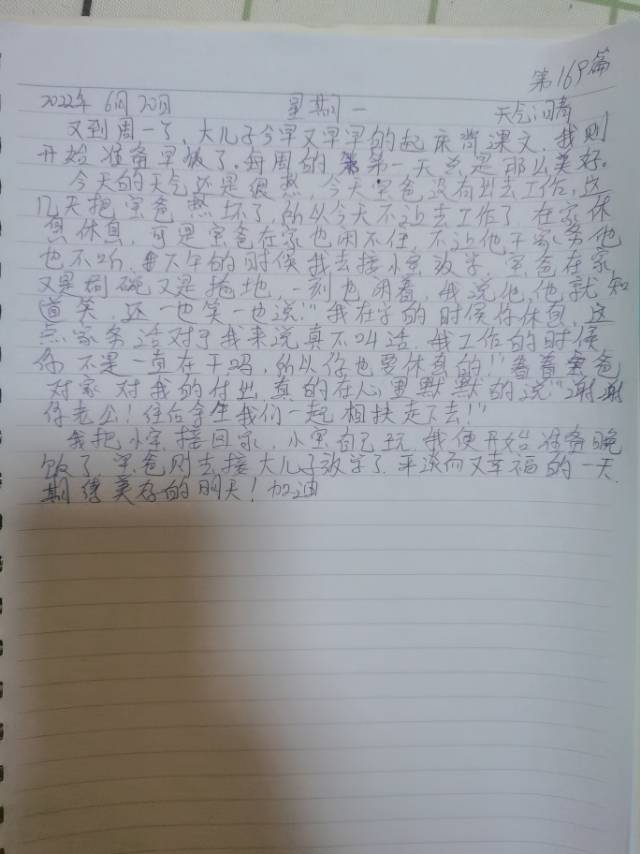 第169篇
2022年 6月20日 星期一 天气:晴
又到周一了,大儿子今早又早早的起床背课文,我则
开始准备早饭了。每周的第一天总是那么美好。
今天的天气还是很热,今天宝爸没有出去工作,这
几天把宝爸热坏了,所以今天不让去工作了在家休
息休息,可是宝爸在家也闲不住,不让他干家务他
也不听,下午的时候我去接小宝放学,宝爸在家
又是刷碗又是拖地,一刻也闲着,我说他,他就知
道笑,还一边笑一边说:"我在家的时候你休息,这
点家务活对于我来说真不叫活,我工作的时候
你不是一直在干吗,所以你也要休息的!"看着宝爸
对家对我的付出,真的在心里默默的说"谢谢
你老公!往后余生我们一起相扶走下去!"
我把小宝接回家,小宝自己玩,我便开始准备晚
饭了,宝爸则去接大儿子放学了,平淡而又幸福的一天,
期待美好的明天!加油